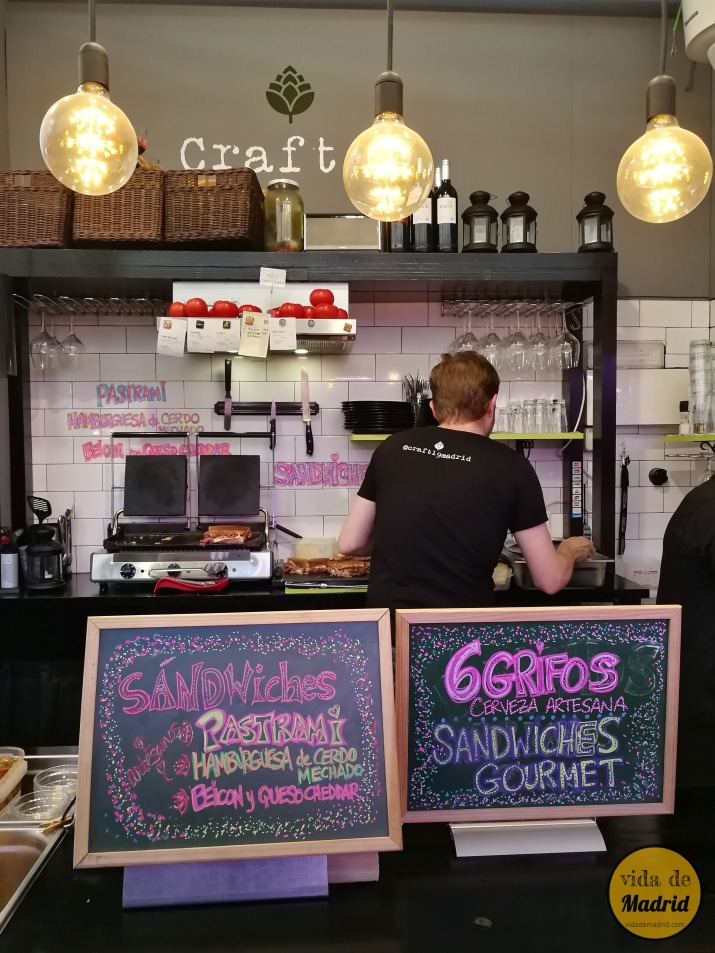 Craft
PASTRAMI
HAMBURGUESA de CERDO
MECHADO
BEICON y QUESO CHEDDAR
SANDWICHE
@craft19madrid
SÁNDWiches
artesanos
PASTRAMI
HAMBURGUESA de CERDO
MECHADO
BEICON y QUESO CHEDDAR
6 GRIFOS
CERVEZA ARTESANA
SANDWICHES
GOURMET
vida de
Madrid
vidademadrid.com